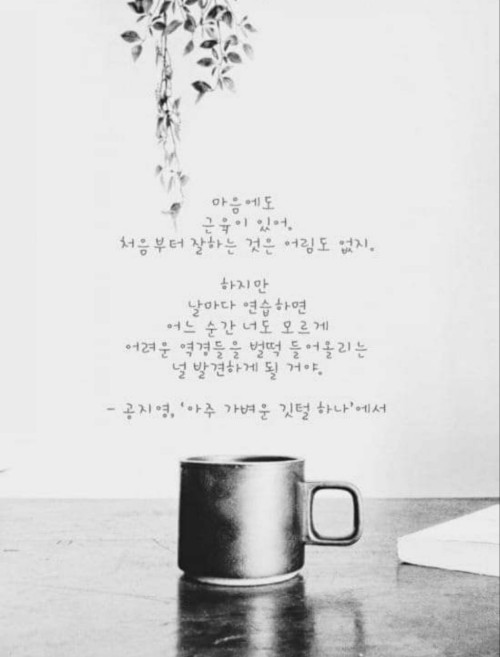 마음에도
근육이 있어.
처음부터 잘하는 것은 어림도 없지.
하지만
날마다 연습하면
어느 순간 너도 모르게
어려운 역경들을 벌떡 들어올리는
널 발견하게 될 거야.
- 공지영, '아주 가벼운 깃털 하나'에서